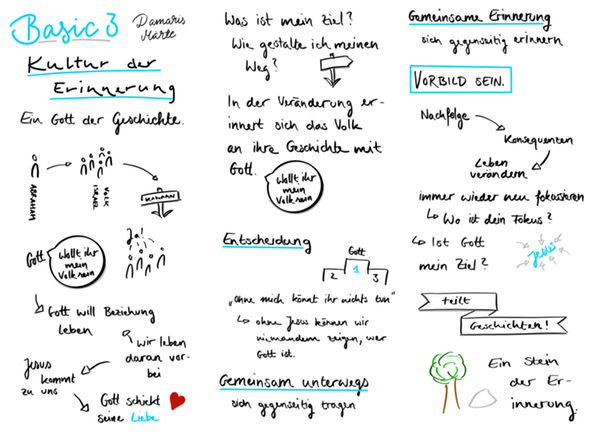 Basic 3
Damaris
Härte
Kultur der
Erinnerung
Ein Gott der Geschichte.
ABRAHAM
VOLK
ISRAEL
KANAAN
Gott
Wollt ihr
mein
Volk sein
Ja!
Gott will Beziehung
leben
wir leben
daran vor-
bei
Jesus
kommt
zu uns
Gott schickt
seine Liebe
Was ist mein Ziel?
Wie gestalte ich meinen
Weg?
In der Veränderung er-
innert sich das Volk
an ihre Geschichte mit
Gott.
Wollt ihr
mein
Volk sein
Entscheidung
Gott
2 1 3
"ohne mich könnt ihr nichts tun"
ohne Jesus können wir
niemandem zeigen, wer
Gott ist.
Gemeinsam unterwegs
sich gegenseitig tragen
Gemeinsame Erinnerung
sich gegenseitig erinnern
VORBILD SEIN.
Nachfolge
Konsequenten
Leben
verändern
immer wieder neu fokussieren
Wo ist dein Fokus?
Ist Gott
mein Ziel?
Jesus
teilt
Geschichten!
Ein Stein
der Er-
innerung.